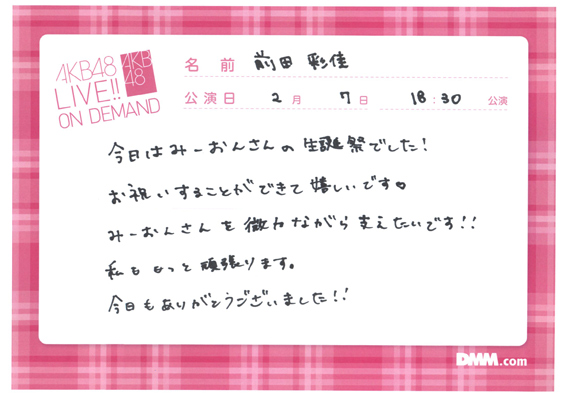 AKB48
LIVE!!
ON DEMAND
AKB
48
名 前 前田 彩佳
公演日 2月 7日 18:30 公演
今日はみーおんさんの生誕祭でした!
お祝いすることができて嬉しいです♡
みーおんさんを微力ながら支えたいです!!
私ももっと頑張ります。
今日もありがとうございました!!
DMM.com